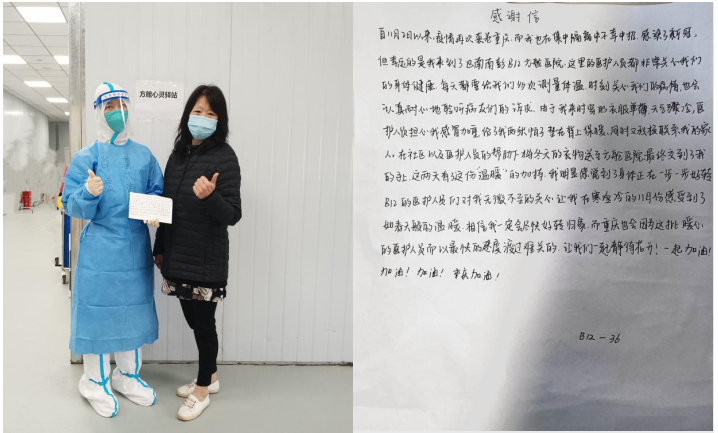 方舱心灵驿站
感谢信
自11月2日以来，疫情再次袭卷重庆，而我也在集中隔离中不幸中招，感染了新冠。
但幸运的是我来到了巴南南彭B12方舱医院，这里的医护人员都非常关心我们
的身体健康，每天都要给我们多次测量体温，时刻关心我们的病情，也会
认真耐心地聆听病友们的诉求。由于我来时穿的衣服单薄，天气骤冷，医
护人员担心我感冒加重，给了我两张垫在背上保暖，同时又积极联系我的家
人，在社区以及医护人员的帮助下将冬天的衣物送至方舱医院最终交到了我
的手上，这两天有这份"温暖"的加持，我明显感觉到了身体正在一步一步好转
B12的医护人员们对我无微不至的关心，让我在寒冷的11月份感受到了
如春天般的温暖。相信我一定会尽快好转归家，而重庆也会因为这批暖心
的医护人员而以最快的速度渡过难关的，让我们一起静待花开！一起加油！
加油！加油！重庆加油！
B12-36